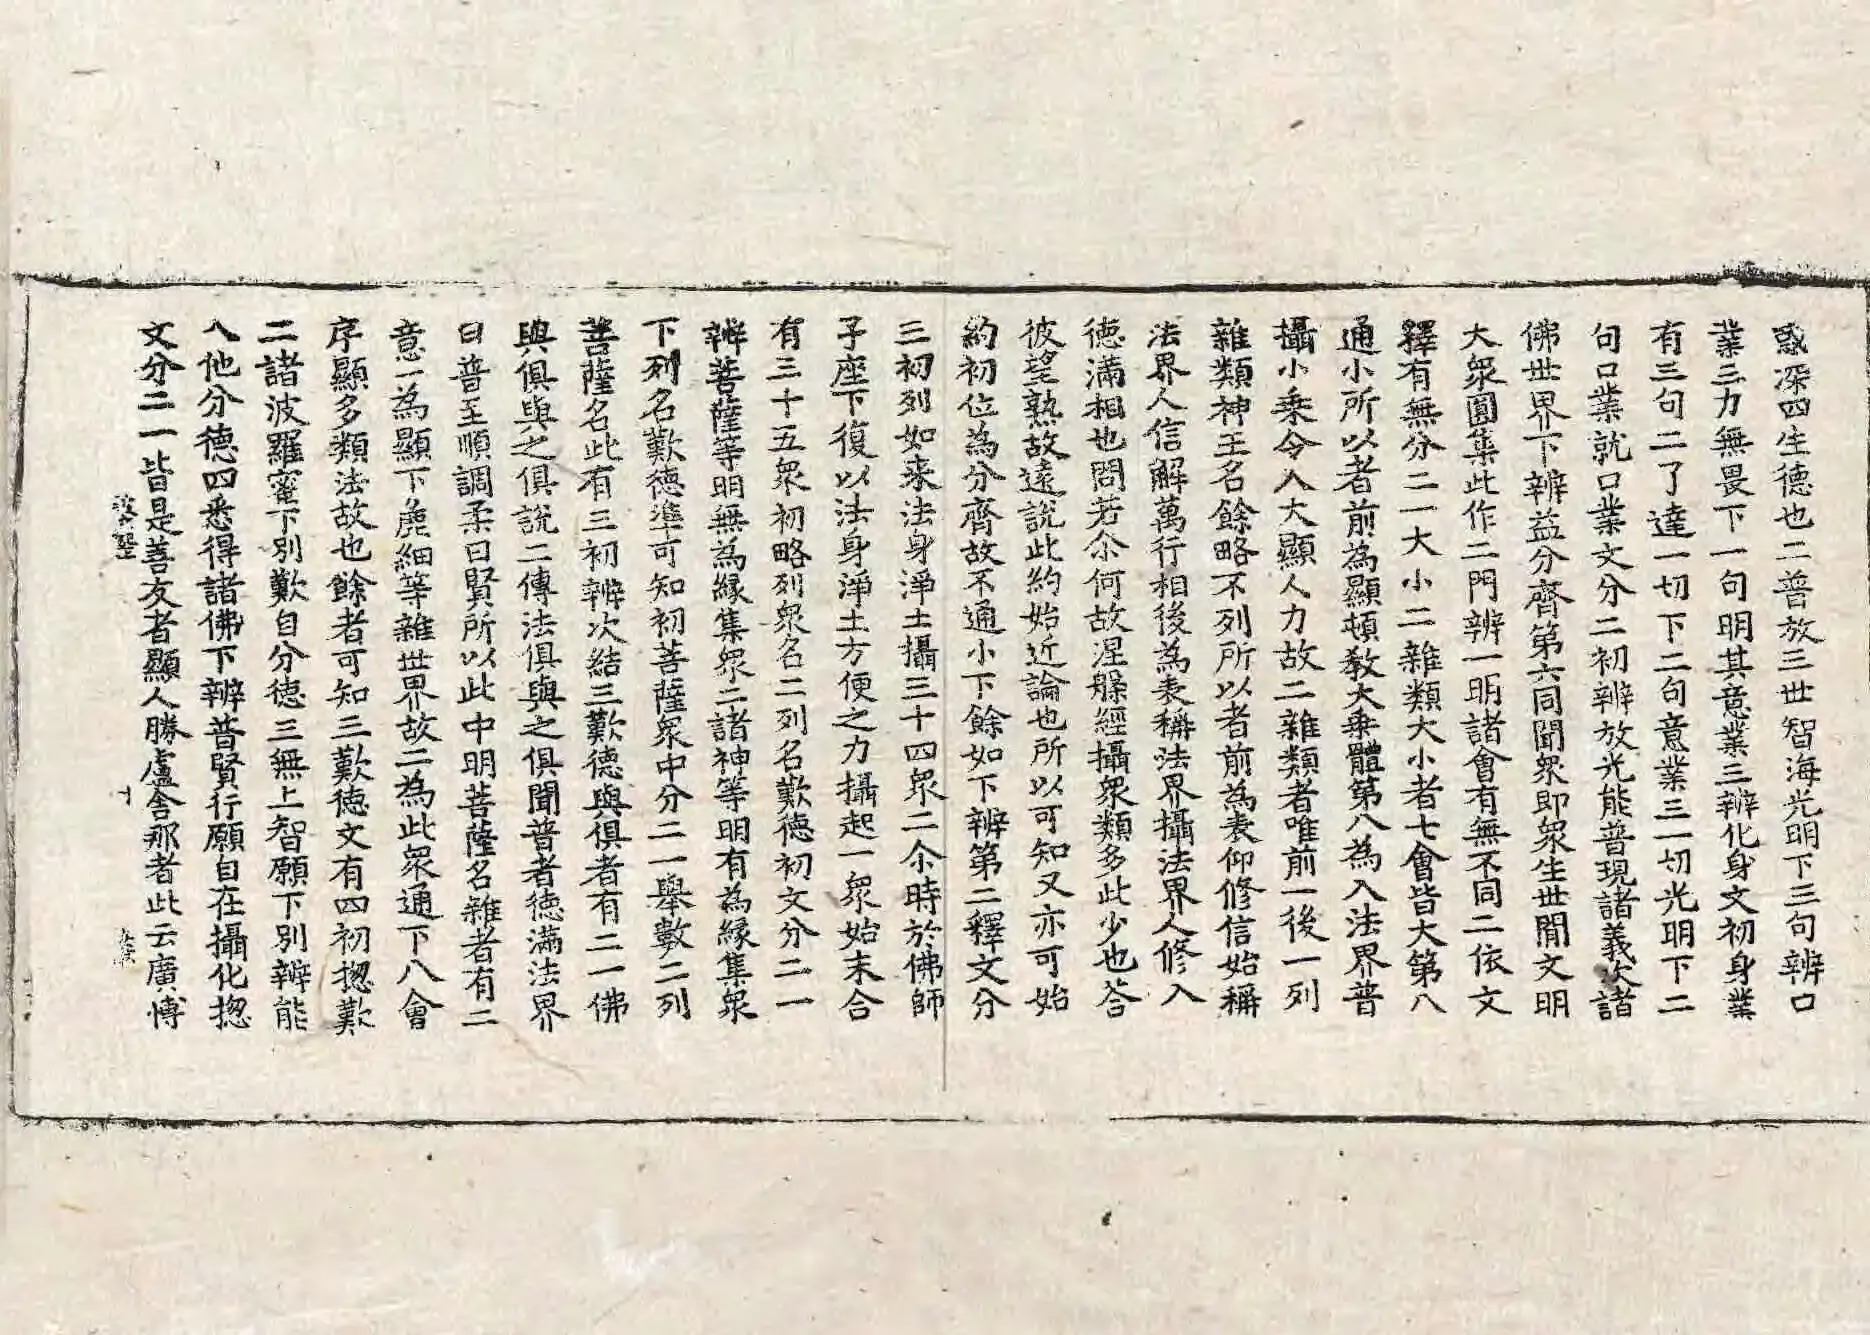 惑深四生德也二普放三世智海光明下三句辨口
業三力無畏下一句明其意業三辨化身文初身業
有三句二了達一切下二句意業三一切光明下二
句口業就口業文分二初辨放光能普現諸義次諸
佛世界下辨益分齊第六同聞衆即衆生世間文明
大衆圓集此作二門辨一明諸會有無不同二依文
釋有無分二一大小二雜類大小者七會皆大第八
通小所以者前為顯頓教大乗體第八為入法界普
攝小乗令入大顯人力故二雜類者唯前一後一列
雜類神王名餘略不列所以者前為表仰修信始稱
法界人信解萬行相後為表稱法界攝法界人修入
德滿相也問若尒何故涅槃經攝衆類多此少也荅
彼望熟故遠說此約始近論也所以可知又亦可始
約初位為分齊故不通小下餘如下辨第二釋文分
三初列如来法身淨土攝三十四衆二尒時於佛師
子座下復以法身淨土方便之力攝起一衆始末合
有三十五衆初略列衆名二列名歎德初文分二一
辨菩薩等明無為緣集衆二諸神等明有為緣集衆
下列名歎德準可知初菩薩衆中分二一舉數二列
菩薩名此有三初辨次結三歎德與俱者有二一佛
與俱與之俱說二傳法俱與之俱聞普者德滿法界
曰普至順調柔曰賢所以此中明菩薩名雜者有二
意一為顯下麁細等雜世界故二為此衆通下八會
序顯多類法故也餘者可知三歎德文有四初揔歎
二諸波羅蜜下別歎自分德三無上智願下別辨能
入他分德四悉得諸佛下辨普賢行願自在攝化揔
文分二一皆是善友者顯人勝盧舍那者此云廣博